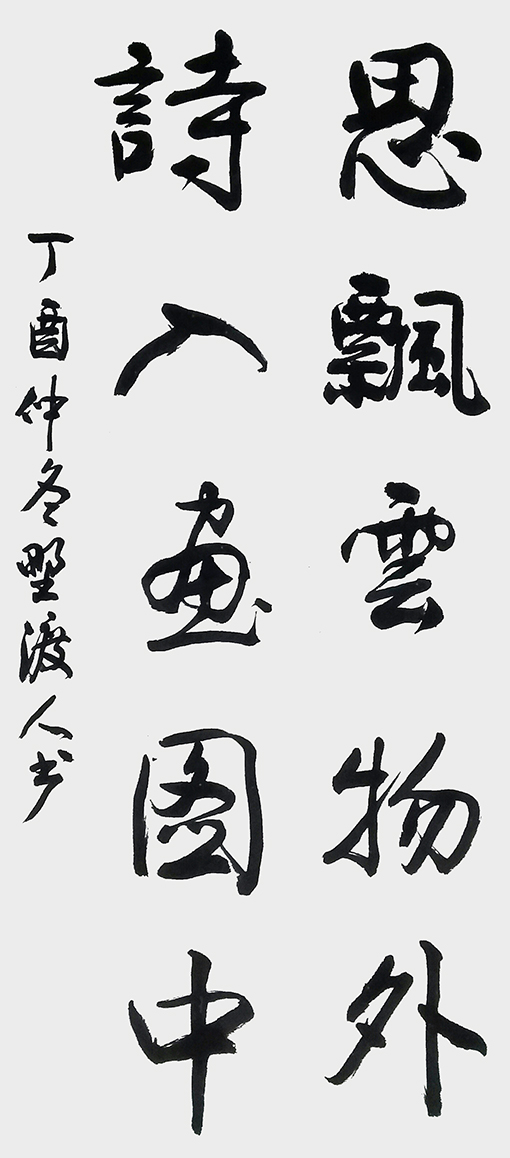 思飄雲物外
詩入画图中
丁酉仲冬野渡人书